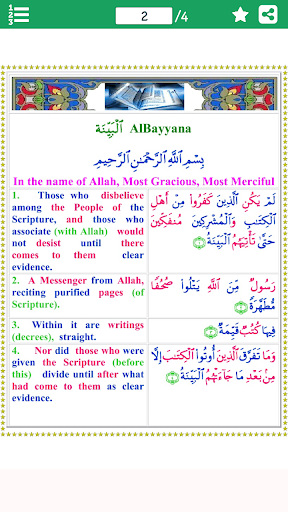 1
2
3
2 /4
اَلْبَيِّنَة AlBayyana
بِسْمِ اللَّهِ الرَّحْمَٰنِ الرَّحِيمِ
In the name of Allah, Most Gracious, Most Merciful
1. Those who disbelieve
among the People of the
Scripture, and those who
associate (with Allah) would
not desist until there
comes to them clear
evidence.
لَمْ يَكُنِ الَّذِينَ كَفَرُوا۟ مِنْ أَهْلِ
الْكِتَٰبِ وَالْمُشْرِكِينَ مُنفَكِّينَ
حَتَّىٰ تَأْتِيَهُمُ الْبَيِّنَةُ
2. A Messenger from Allah,
reciting purified pages (of
Scripture).
رَسُولٌ مِّنَ اللَّهِ يَتْلُوا۟ صُحُفًا
مُّطَهَّرَةً
3. Within it are writings
(decrees), straight.
فِيهَا كُتُبٌ قَيِّمَةٌ
4. Nor did those who were
given the Scripture (before
this) divide until after what
had come to them as clear
evidence.
وَمَا تَفَرَّقَ الَّذِينَ أُوتُوا۟ الْكِتَٰبَ إِلَّا
مِنۢ بَعْدِ مَا جَآءَتْهُمُ الْبَيِّنَةُ